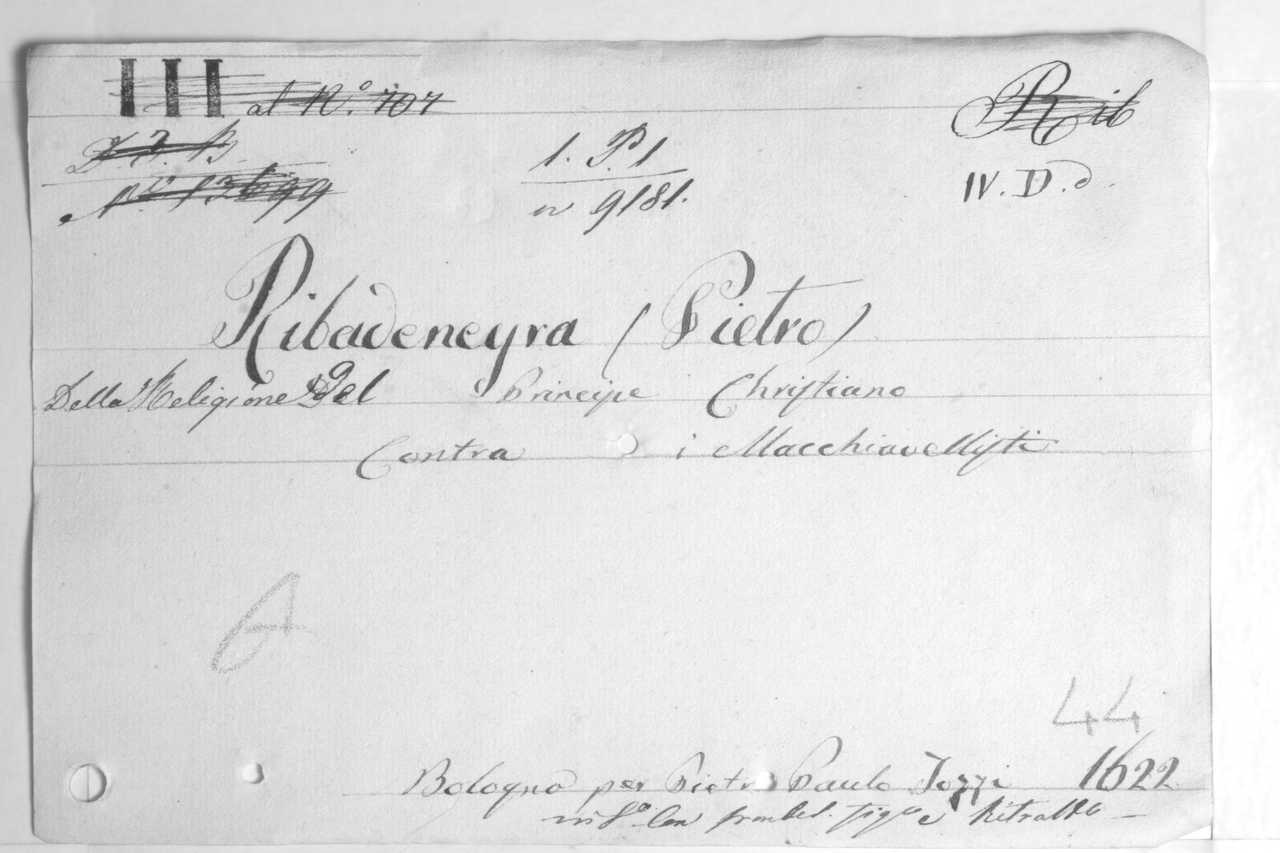 III al N.° 707 Rib
N.° 13699
1. P. 1 IV. D. d.
n 9181.
Ribadeneyra (Pietro)
Della Religione Del Principe Christiano
Contra i Macchiavellisti
A
44
Bologna per Pietro Paulo Tozzi 1622
in 8.° Con fig.e e Ritratto